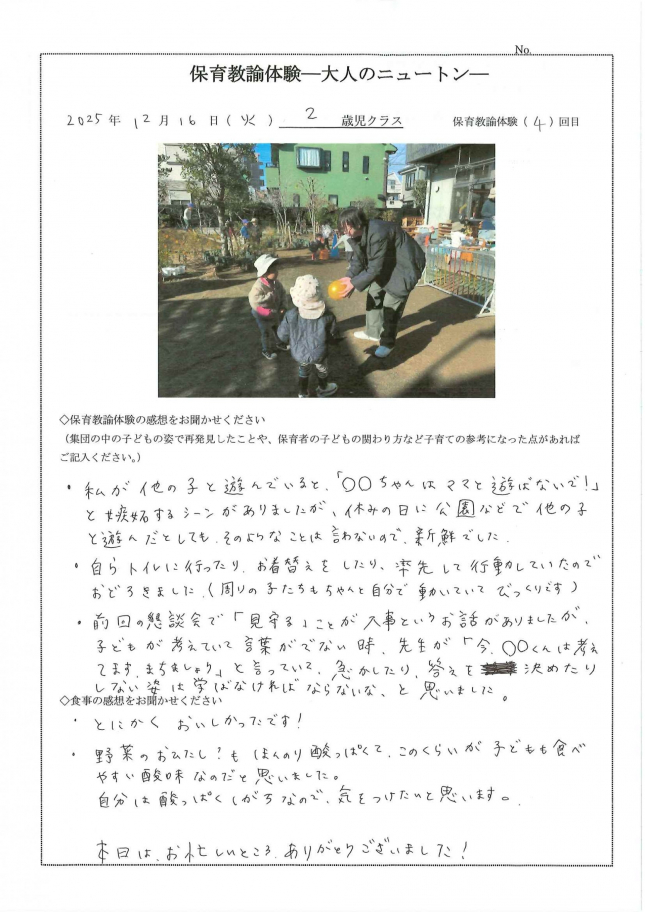 No.
保育教諭体験―大人のニュートン―
2025年 12月 16日(火) 2 歳児クラス 保育教諭体験(4)回目
◇保育教諭体験の感想をお聞かせください
(集団の中の子どもの姿で再発見したことや、保育者の子どもの関わり方など子育ての参考になった点があれば
ご記入ください。)
・私が他の子と遊んでいると、「〇〇ちゃんはママと遊ばないで!」
と嫉妬するシーンがありましたが、休みの日に公園などで他の子
と遊んだとしても、そのようなことは言わないので、新鮮でした。
・自らトイレに行ったり、お着替えをしたり、率先して行動していたので
おどろきました。(周りの子たちもちゃんと自分で動いていてびっくりです)
・前回の懇談会で「見守る」ことが大事というお話がありましたが、
子どもが考えていて言葉がでない時、先生が「今、〇〇くんは考え
てます。まちましょう」と言っていて、急かしたり、答えを決めたり
しない姿は学ばなければならないな、と思いました。
◇食事の感想をお聞かせください
・とにかくおいしかったです!
・野菜のおひたし?もほんのり酸っぱくて、このくらいが子どもも食べ
やすい酸味なのだと思いました。
自分は酸っぱくしがちなので、気をつけたいと思います。
本日は、お忙しいところ、ありがとうございました!